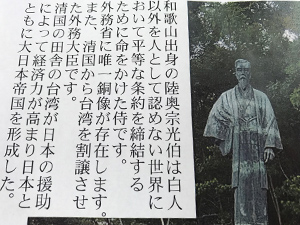 和歌山出身の陸奥宗光伯は白人
以外を人として認めない世界に
おいて平等な条約を締結する
ために命をかけた侍です。
外務省に唯一銅像が存在します。
また、清国から台湾を割譲させ
た外務大臣です。
清国の田舎の台湾が日本の援助
によって経済力が高まり日本と
ともに大日本帝国を形成した。